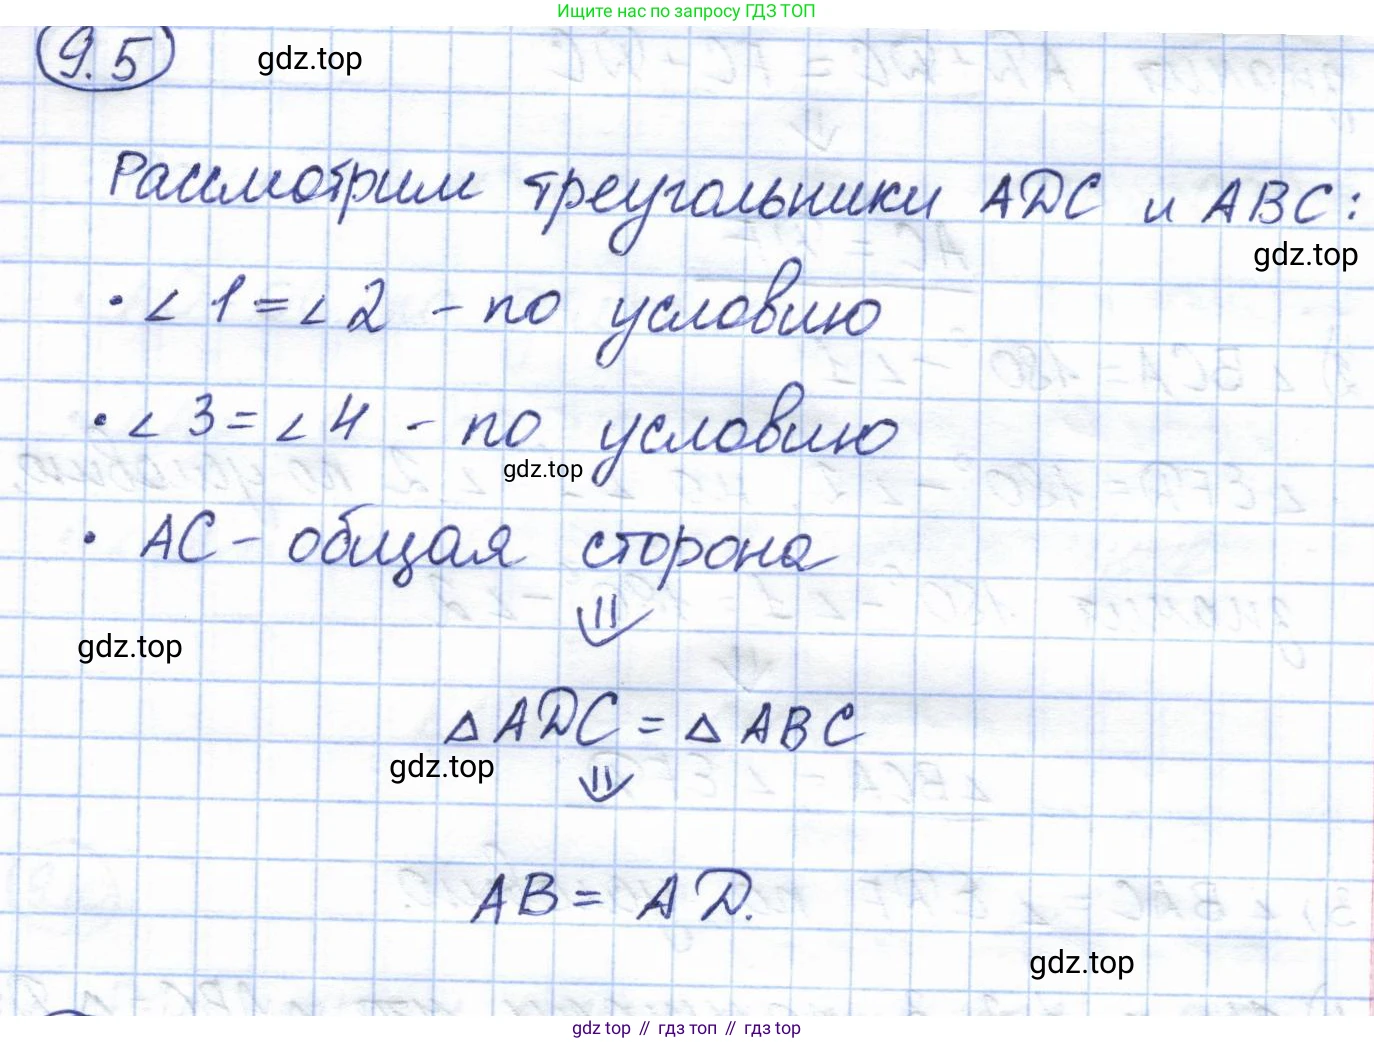 Ищите нас по запросу ГДЗ ТОП
9.5
gdz.top
Рассмотрим треугольники ADC и ABC:
gdz.top
• ∠1=∠2 - по условию
• ∠3=∠4 - по условию
gdz.top
• AC - общая сторона
⇓
gdz.top
△ADC = △ABC
gdz.top
⇓
AB = AD.
gdz.top
gdz top // гдз топ // gdz top